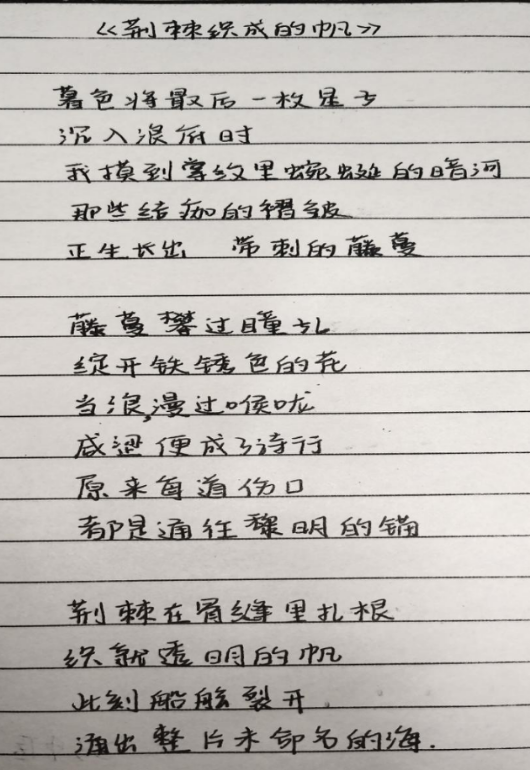 《荆棘织成的帆》
暮色将最后一枚星子
沉入浪底时
我摸到掌纹里蜿蜒的暗河
那些结痂的褶皱
正生长出 带刺的藤蔓
藤蔓攀过瞳孔
绽开铁锈色的花
当浪漫过喉咙
咸涩便成了诗行
原来每道伤口
都是通往黎明的锚
荆棘在骨缝里扎根
织就透明的帆
此刻船舷裂开
涌出整片未命名的海.